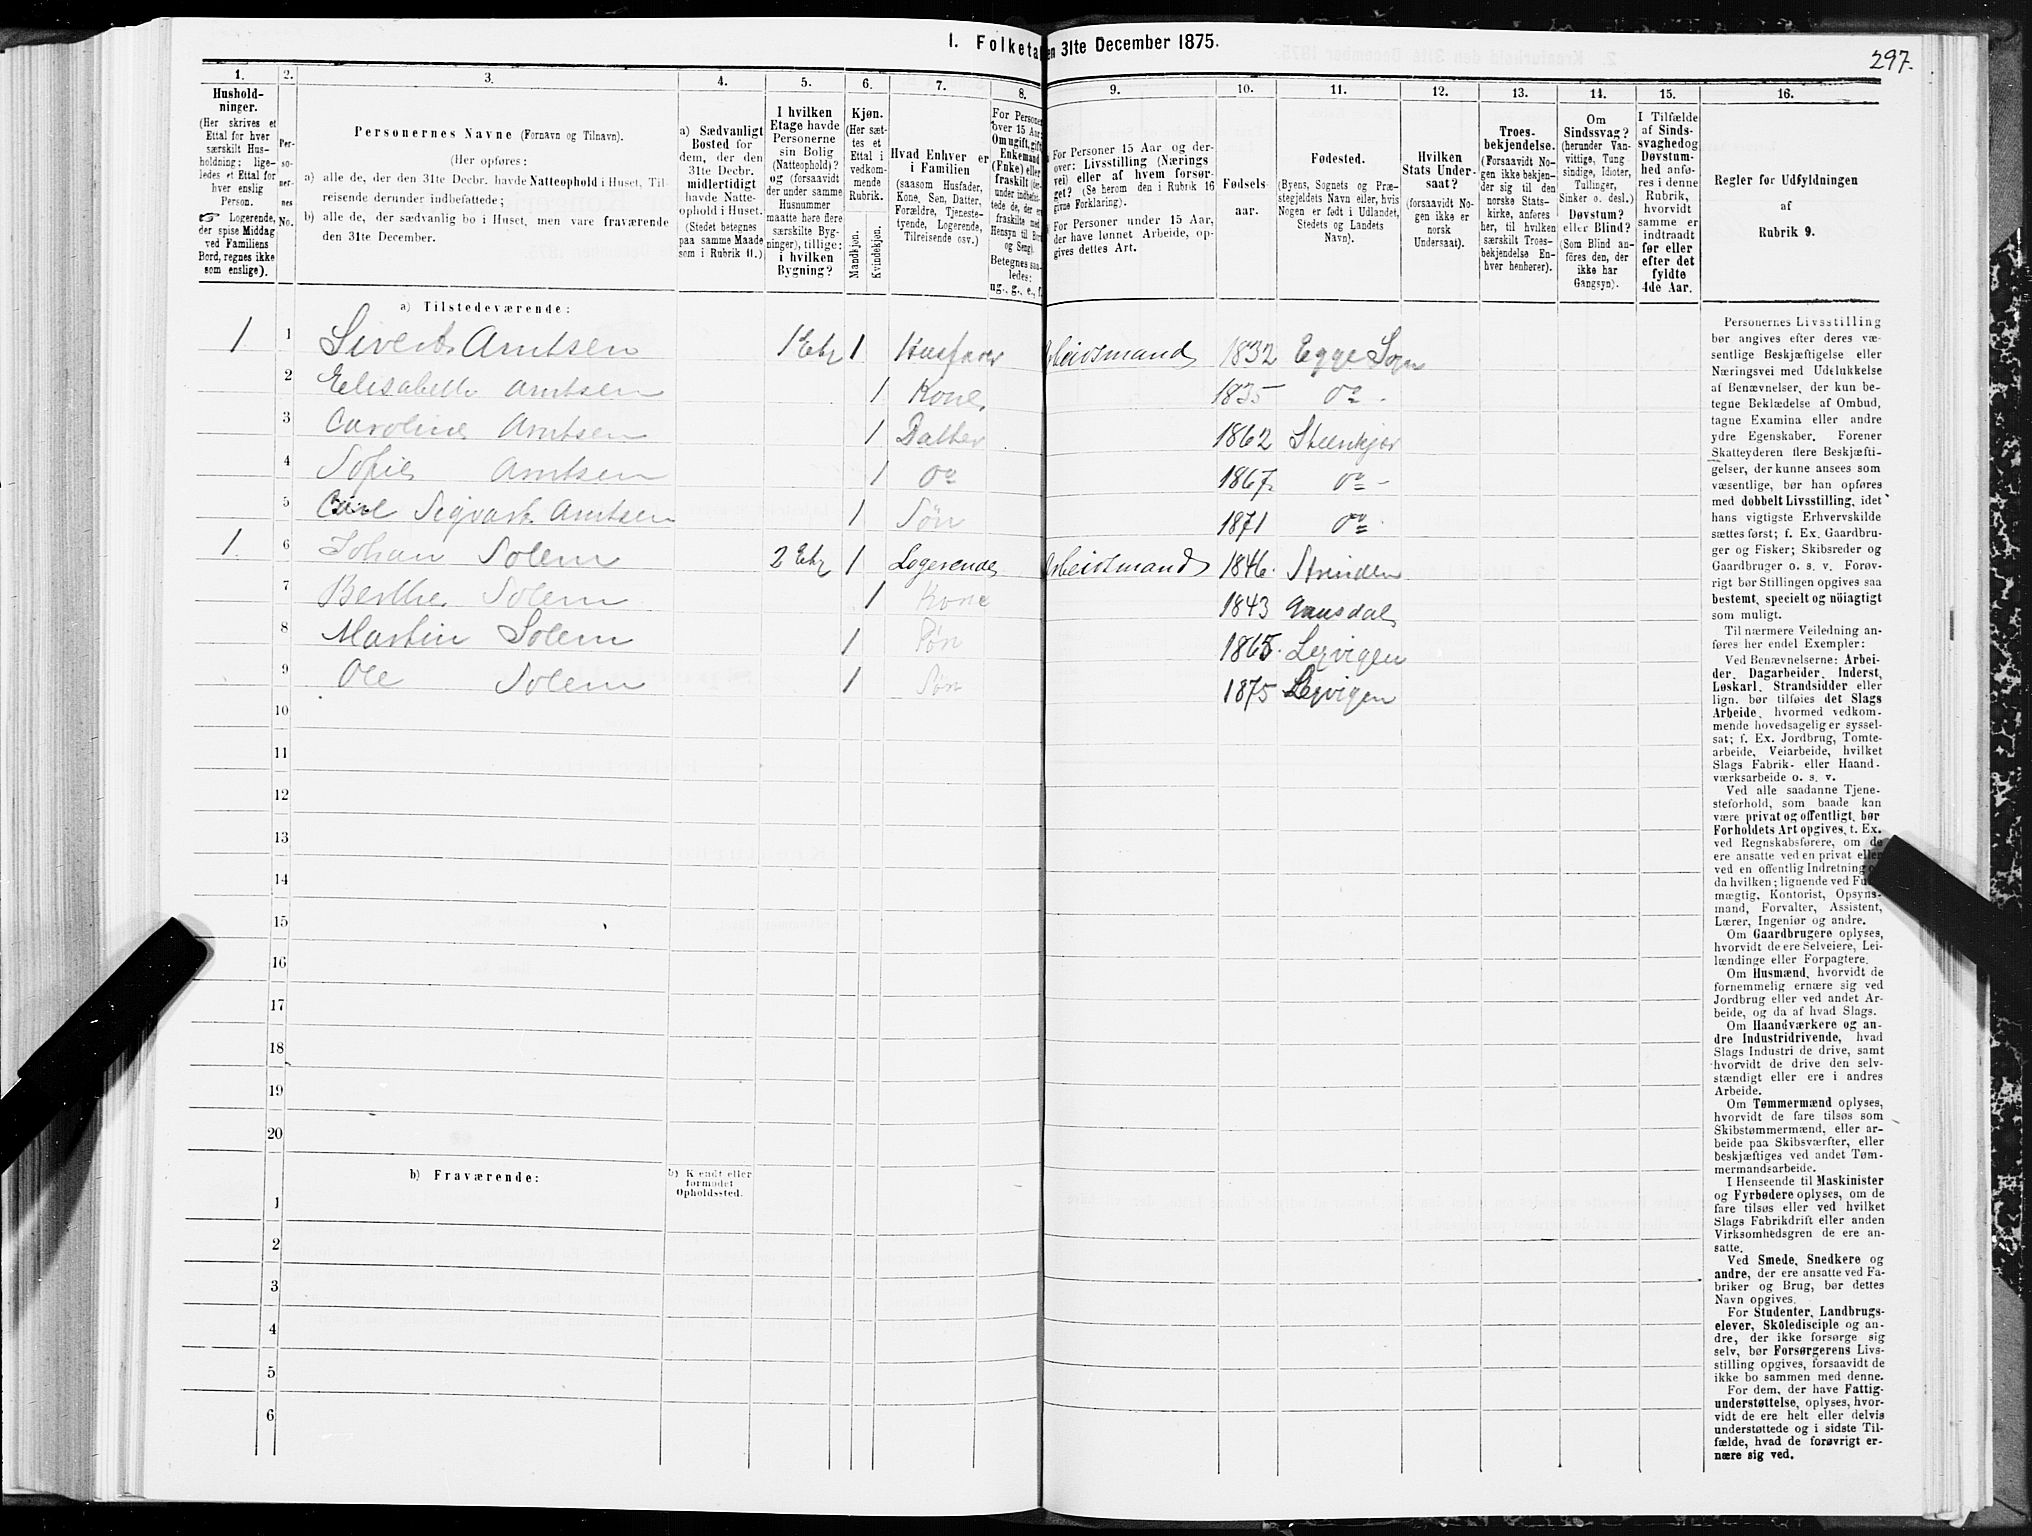 I. Folketal den 31te December 1875.
297.
1.
2.
3.
4.
5.
6.
7.
8.
9.
10.
11.
12.
13.
14.
15.
16.
Hushold-
ninger.
(Her skrives et
Ettal for hver
særskilt Hus-
holdning; lige-
ledes et Ettal for
hver enslig
Person.
☞ Logerende,
der spise Middag
ved Familiens
Bord, regnes ikke
som enslige).
Per-
so-
ner-
nes
No.
Personernes Navne (Fornavn og Tilnavn).
(Her opføres:
a) alle de, der den 31te Decbr. havde Natteophold i Huset, Til-
reisende derunder indbefattede;
b) alle de, der sædvanlig bo i Huset, men vare fraværende
den 31te December.
a) Sædvanligt
Bosted for
dem, der den
31te Decbr.
midlertidigt
havde Natte-
ophold i Huset.
(Stedet betegnes
paa samme Maade
som i Rubrik 11.)
I hvilken
Etage havde
Personerne
sin Bolig
(Natteophold)?
og (forsaavidt
der under samme
Husnummer
maatte høre flere
særskilte Byg-
ninger), tillige:
i hvilken
Bygning?
Kjøn.
(Her sæt-
tes et
Ettal i
vedkom-
mende
Rubrik.
Mandkjøn.
Kvindekjøn.
Hvad Enhver er
i Familien
(saasom Husfader,
Kone, Søn, Datter,
Forældre, Tjeneste-
tyende, Logerende,
Tilreisende osv.)
For Personer
over 15 Aar:
Om ugift, gift,
Enkemand
(Enke) eller
fraskilt
under indbefat-
tede de, der ere
fraskilte med
Hensyn til Bord
og Seng).
Betegnes saa-
ledes:
ug., g., e., f.
For Personer 15 Aar og der-
over: Livsstilling (Nærings
vei) eller af hvem forsør-
get? (Se herom den i Rubrik 16
givne Forklaring).
For Personer under 15 Aar,
der have lønnet Arbeide, op-
gives dettes Art.
Fødsels-
aar.
Fødested.
(Byens, Sognets og Præ-
stegjeldets Navn eller, hvis
Nogen er født i Udlandet,
Stedets og Landets
Navn).
Hvilken
Stats Under-
saat?
(forsaavidt No-
gen ikke er
norsk
Undersaat).
Troes-
bekjendelse.
(Forsaavidt No-
gen ikke bekjen-
der sig til den
norske Stats-
kirke, anføres
her, til hvilken
særskilt Troes-
bekjendelse En-
hver henhører).
Om
Sindssvag?
(herunder Van-
vittige, Tung-
sindige, Idioter,
Tullinger,
Sinker o. desl.)
Døvstum?
eller Blind?
(Som Blind an-
føres den, der
ikke har
Gangsyn).
I Tilfælde
af Sinds-
svaghed og
Døvstum-
hed anfø-
res i denne
Rubrik,
hvorvidt
samme er
indtraadt
før eller
efter det
fyldte
4de Aar.
Regler for Udfyldningen
af
Rubrik 9.
a) Tilstedeværende:
1 1 Sivert Arntsen 1 Etg 1 Husfader Arbeidsmand 1832 Egge Sogn
2 Elisabeth Arntsen 1 Kone 1835 do
3 Caroline Arntsen 1 Datter 1862 Steenkjer
4 Sofie Arntsen 1 do 1867 do
5 Carl Sigvart Arntsen 1 Søn 1871 do
1 6 Johan Solem 2 Etg 1 Logerende Arbeidsmand 1846 Strinden
7 Berthe Solem 1 Kone 1843
8 Martin Solem 1 Søn 1865 Lexvigen
9 Ole Solem 1 Søn 1875 Lexvigen
10
11
12
13
14
15
16
17
18
19
20
b) Fraværende:
b) Kjendt eller
formodet
Opholdssted.
1
2
3
4
5
6
Personernes Livsstilling
bør angives efter deres væ-
sentlige Beskjæftigelse eller
Næringsvei med Udelukkelse
af Benævnelser, der kun be-
tegne Beklædelse af Ombud,
tagne Examina eller andre
ydre Egenskaber. Forener
Skatteyderen flere Beskjæfti-
gelser, der kunne ansees som
væsentlige, bør han opføres
med dobbelt Livsstilling, idet
hans vigtigste Erhvervskilde
sættes først; f. Ex. Gaardbru-
ger og Fisker; Skibsreder og
Gaardbruger o. s. v. Forøv-
rigt bør Stillingen opgives saa
bestemt, specielt og nöiagtigt
som muligt.
Til nærmere Veiledning an-
føres her endel Exempler:
Ved Benævnelserne: Arbei-
der, Dagarbeider, Inderst,
Løskarl, Strandsidder eller
lign. bør tilføies det Slags
Arbeide, hvormed vedkom-
mende hovedsagelig er syssel-
sat; f. Ex. Jordbrug, Tomte-
arbeide, Veiarbeide, hvilket
Slags Fabrik- eller Haand-
værksarbeide o. s. v.
Ved alle saadanne Tjene-
steforhold, som baade kan
være privat og offentligt, bør
Forholdets Art opgives, t. Ex.
ved Regnskabsførere, om de
ere ansatte ved en privat eller
ved en offentlig Indretning og
da hvilken; lignende ved Fuld-
mægtig, Kontorist, Opsyns-
mand, Forvalter, Assistent,
Lærer, Ingeniør og andre.
Om Gaardbrugere oplyses,
hvorvidt de ere Selveiere, Lei-
lændinge eller Forpagtere.
Om Husmænd, hvorvidt de
fornemmelig ernære sig ved
Jordbrug eller ved andet Ar-
beide, og da af hvad Slags.
Om Haandværkere og an-
dre Industridrivende, hvad
Slags Industri de drive, samt
hvorvidt de drive den selv-
stændigt eller ere i andres
Arbeide.
Om Tømmermænd oplyses,
hvorvidt de fare tilsøs som
Skibstømmermænd, eller ar-
beide paa Skibsværfter, eller
beskjæftiges ved andet Tøm-
mermandsarbeide.
I Henseende til Maskinister
og Fyrbødere oplyses, om de
fare tilsøs eller ved hvilket
Slags Fabrikdrift eller anden
Virksomhedsgren de ere an-
satte.
Ved Smede, Snedkere og
andre, der ere ansatte ved Fa-
briker og Brug, bør dettes
Navn opgives.
For Studenter, Landbrugs-
elever, Skoledisciple og an-
dre, der ikke forsørge sig
selv, bør Forsørgerens Livs-
stilling opgives, forsaavidt de
ikke bo sammen med denne.
For dem, der have Fattig-
understøttelse, oplyses, hvor-
vidt de ere helt eller delvis
understøttede og i sidste Til-
fælde, hvad de forøvrigt er-
nære sig ved.